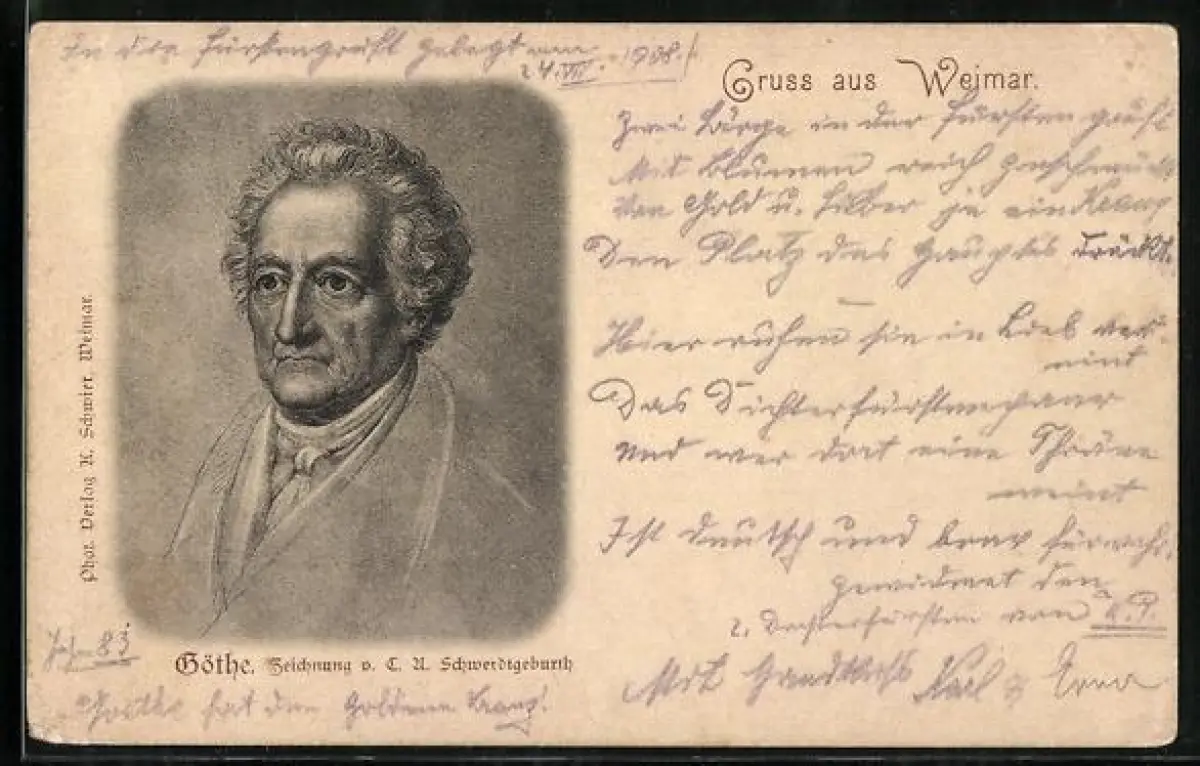 In der Fürstengruft gelegt am
24. VII. 1908.
Gruss aus Weimar.
Zwei Särge in der Fürstengruft
Mit Blumen reich geschmückt
Von Gold u. Silber je ein Kranz
Den Platz des Hauptes drückt.
Hier ruhen sie in Lieb ver-
eint
Das Dichterfürstenpaar
Und wer dort eine Thräne
weint
Ist deutsch und brav fürwahr.
gewidmet den
2. Dichterfürsten von K. P.
Mit Karl &
Phot. Verlag K. Schwier, Weimar.
Göthe. Zeichnung v. C. A. Schwerdtgeburth
83
Goethe hat den Goldene Kranz!